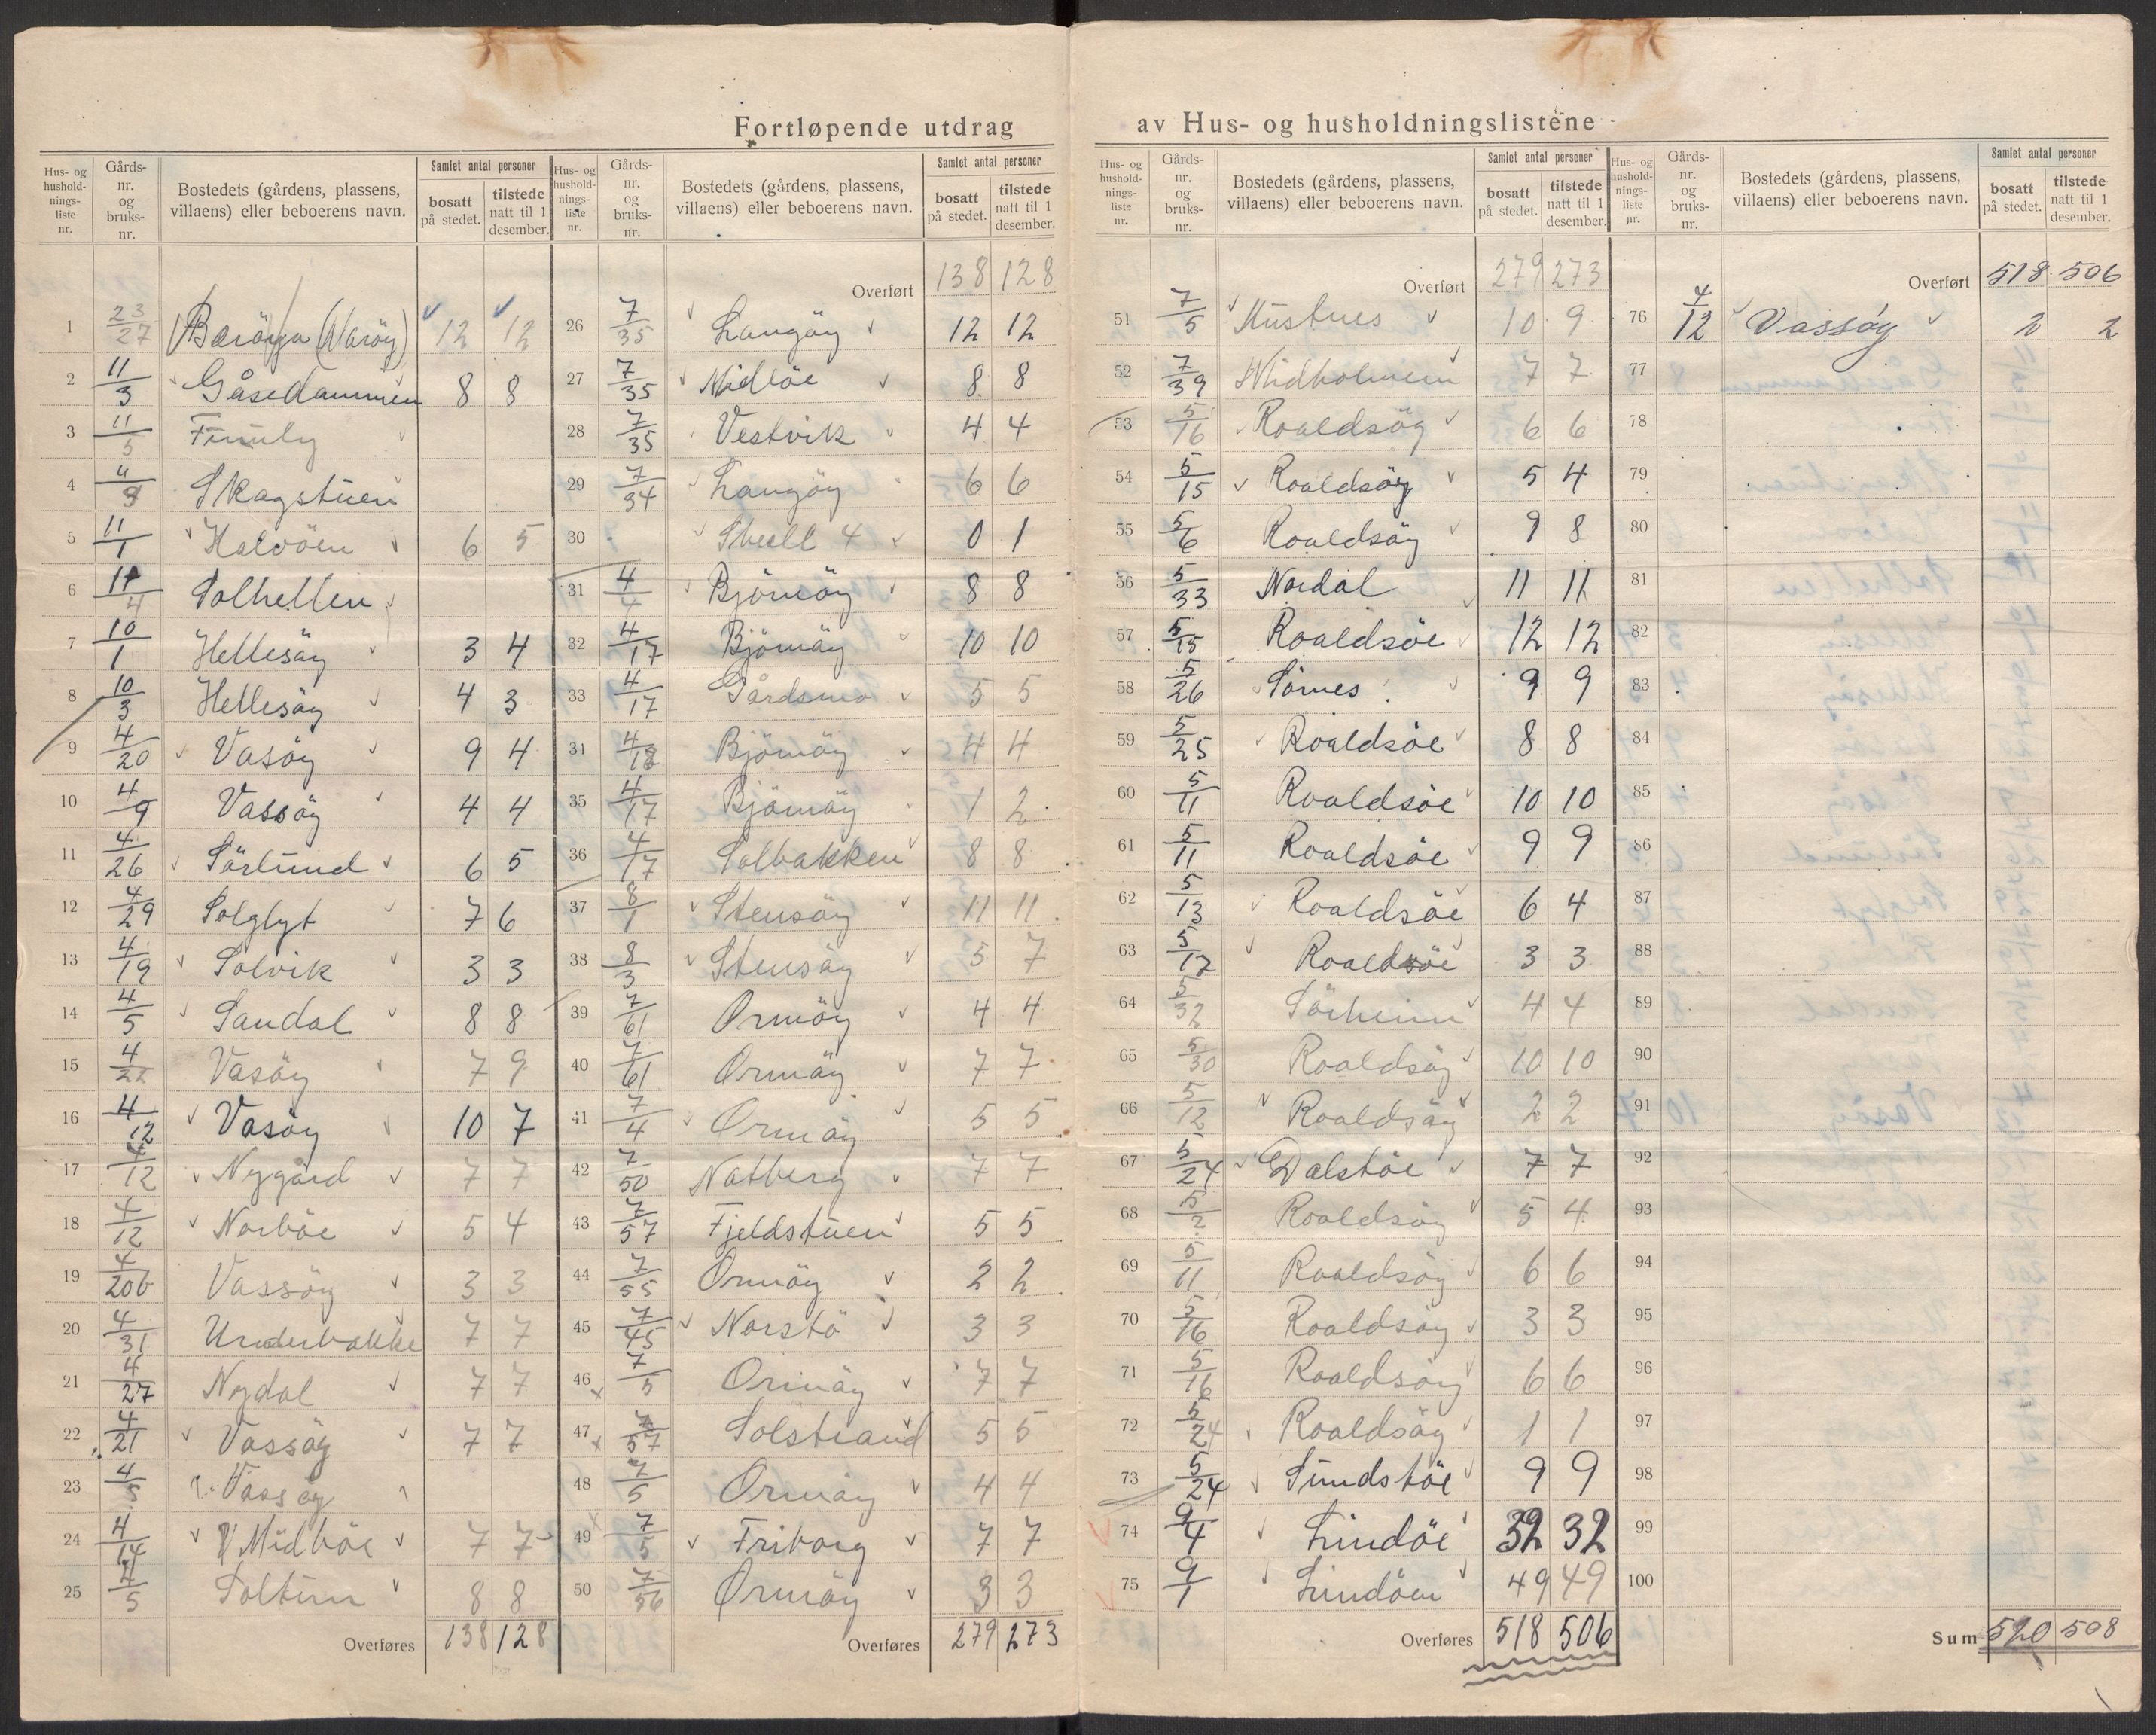 Fortløpende utdrag av Hus- og husholdningslistene
Hus- og husholdnings-liste nr. | Gårds-nr. og bruks-nr. | Bostedets (gårdens, plassens, villaens) eller beboerens navn. | Samlet antal personer | bosatt på stedet. | tilstede natt til 1 desember.
1 23/27 Barøya (Varøy) 12 12
2 11/3 Gåsedammen 8 8
3 11/5
4 11/9 Skagstuen
5 11/1 Halvöen 6 5
6 11/4 Solhellen
7 10/1 Hellesöy 3 4
8 10/3 Hellesöy 4 3
9 4/20 Vasöy 9 4
10 4/9 Vassöy 4 4
11 4/26 Sörlund 6 5
12 4/29 Solglyt 7 6
13 4/19 Solvik 3 3
14 4/5 Sandal 8 8
15 4/22 Vasöy 7 9
16 4/12 Vasöy 10 7
17 4/12 Nygård 7 7
18 4/12 Norböe 5 4
19 4/20b Vassöy 3 3
20 4/31 Underbakke 7 7
21 4/27 Nydal 7 7
22 4/21 Vassöy 7 7
23 4/5 Vassöy
24 4/14 Midböe 7 7
25 4/5 Soltun 8 8
Overføres 138 128
Hus- og husholdnings-liste nr. | Gårds-nr. og bruks-nr. | Bostedets (gårdens, plassens, villaens) eller beboerens navn. | Samlet antal personer | bosatt på stedet. | tilstede natt til 1 desember.
Overført 138 128
26 7/35 Langöy 12 12
27 7/35 Midböe 8 8
28 7/35 Vestvik 4 4
29 7/34 Langöy 6 6
30 Shell 4 0 1
31 4/4 Björnöy 8 8
32 4/17 Björnöy 10 10
33 4/17 Gårdsmo 5 5
34 4/18 Björnöy 4 4
35 4/17 Björnöy 1 2
36 4/17 Solbakken 8 8
37 8/1 Stensöy 11 11
38 8/3 Stensöy 5 7
39 7/61 Ormöy 4 4
40 7/61 Ormöy 7 7
41 7/4 Ormöy 5 5
42 7/50 Natberg 7 7
43 7/57 Fjeldstuen 5 5
44 7/55 Ormöy 2 2
45 7/45 Norstö 3 3
46 7/5 Ormöy 7 7
47 7/57 Solstrand 5 5
48 7/5 Ormöy 4 4
49 7/5 Friborg 7 7
50 7/56 Ormöy 3 3
Overføres 279 273
Hus- og husholdnings-liste nr. | Gårds-nr. og bruks-nr. | Bostedets (gårdens, plassens, villaens) eller beboerens navn. | Samlet antal personer | bosatt på stedet. | tilstede natt til 1 desember.
Overført 279 273
51 7/5 Kustnes 10 9
52 7/39 Midholmen 7 7
53 5/16 Roaldsöy 6 6
54 5/15 Roaldsöy 5 4
55 5/6 Roaldsöy 9 8
56 5/33 Nordal 11 11
57 5/15 Roaldsöe 12 12
58 5/26 Sörnes 9 9
59 5/25 Roaldsöe 8 8
60 5/11 Roaldsöe 10 10
61 5/11 Roaldsöe 9 9
62 5/13 Roaldsöe 6 4
63 5/17 Roaldsöe 3 3
64 5/32 Sörheim 4 4
65 5/30 Roaldsöy 10 10
66 5/12 Roaldsöy 2 2
67 5/24 Dalstöe 7 7
68 5/2 Roaldsöy 5 4
69 5/11 Roaldsöy 6 6
70 5/16 Roaldsöy 3 3
71 5/16 Roaldsöy 6 6
72 5/24 Roaldsöy 1 1
73 5/24 Sundstöe 9 9
74 9/4 Lindöe 32 32
75 9/1 Lindöen 49 49
Overføres 518 506
Hus- og husholdnings-liste nr. | Gårds-nr. og bruks-nr. | Bostedets (gårdens, plassens, villaens) eller beboerens navn. | Samlet antal personer | bosatt på stedet. | tilstede natt til 1 desember.
Overført 518 506
76 4/12 Vassöy 2 2
77
78
79
80
81
82
83
84
85
86
87
88
89
90
91
92
93
94
95
96
97
98
99
100
Sum 520 508